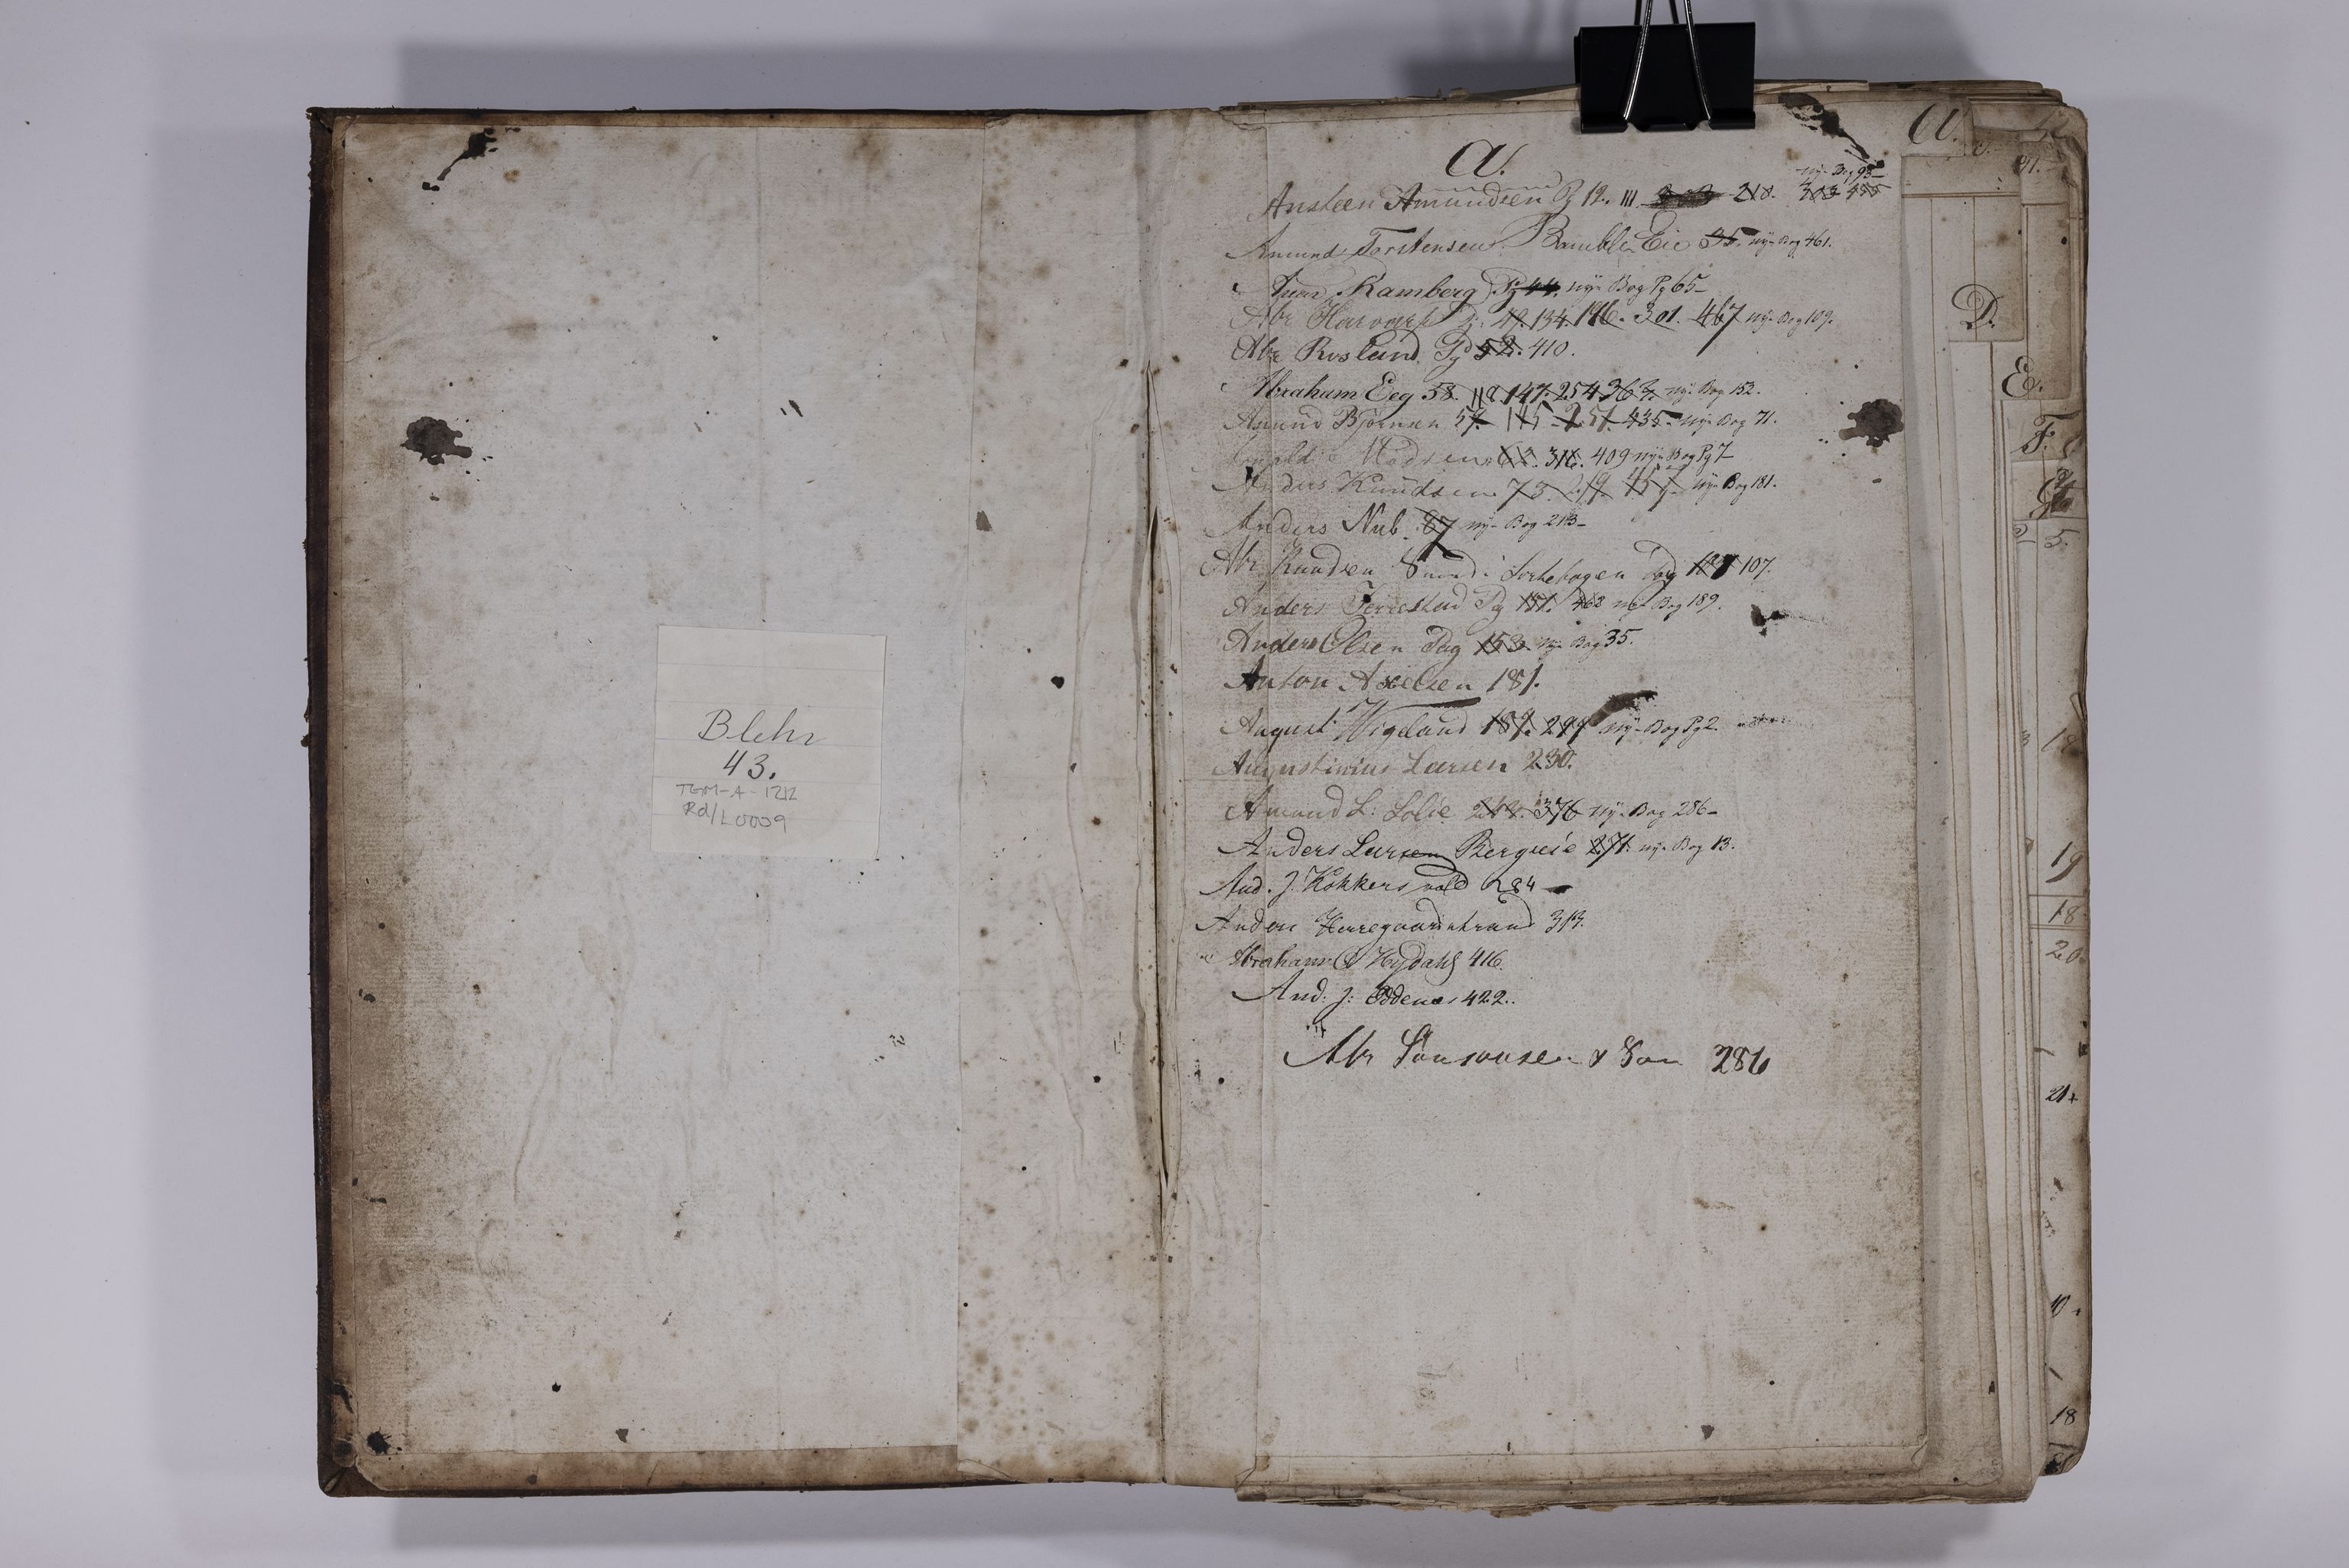 Blehr
43.
TGM-A-1212
Rd/L0009
A.
A.
ny-Bog 95-
Ansteen Amundsen Pg 12. 111 218. 303 455
Amund Torstensen Bamble Eie 35. ny-Bog 461.
Ramberg Pg 44. ny-Bog Pg 65-
Abr 49. 134. 196. 301. 467 ny-Bog 109.
Abr Rosland Pg 52. 410.
Abraham Eeg 58. 118. 147. 254 363. ny-Bog 152.
Amund Bjørnsen 59. 145- 251. 435- ny-Bog 71.
Madsen 63. 316. 409 ny-Bog Pg 7-
Anders Knudsen 73. 219. 457. ny-Bog 181.
Anders Nub. 87 ny-Bog 213-
Abr. Knudsen Smed i Lortehagen Pag 107.
Anders Ferrestad Pg 151. 462 ny-Bog 189.
Anders Olsen Pag 153. ny-Bog 35.
Anton Axelsen 181.
August Wigeland 189. 299 ny-Bog Pg 2.
Augustinius Larsen 230.
Amund L: Solie 242. 376 ny-Bog 286-
Anders Larsen Bergseie 271. ny-Bog 13.
And. J. Kokkersvold 284
Anders Herregaardsstrand 313.
Abraham Hydahl 416.
And: J: Oddenes 422.
Abr & Søn 286
D.
E.
F.
5.
19
18
20
21+
10
18